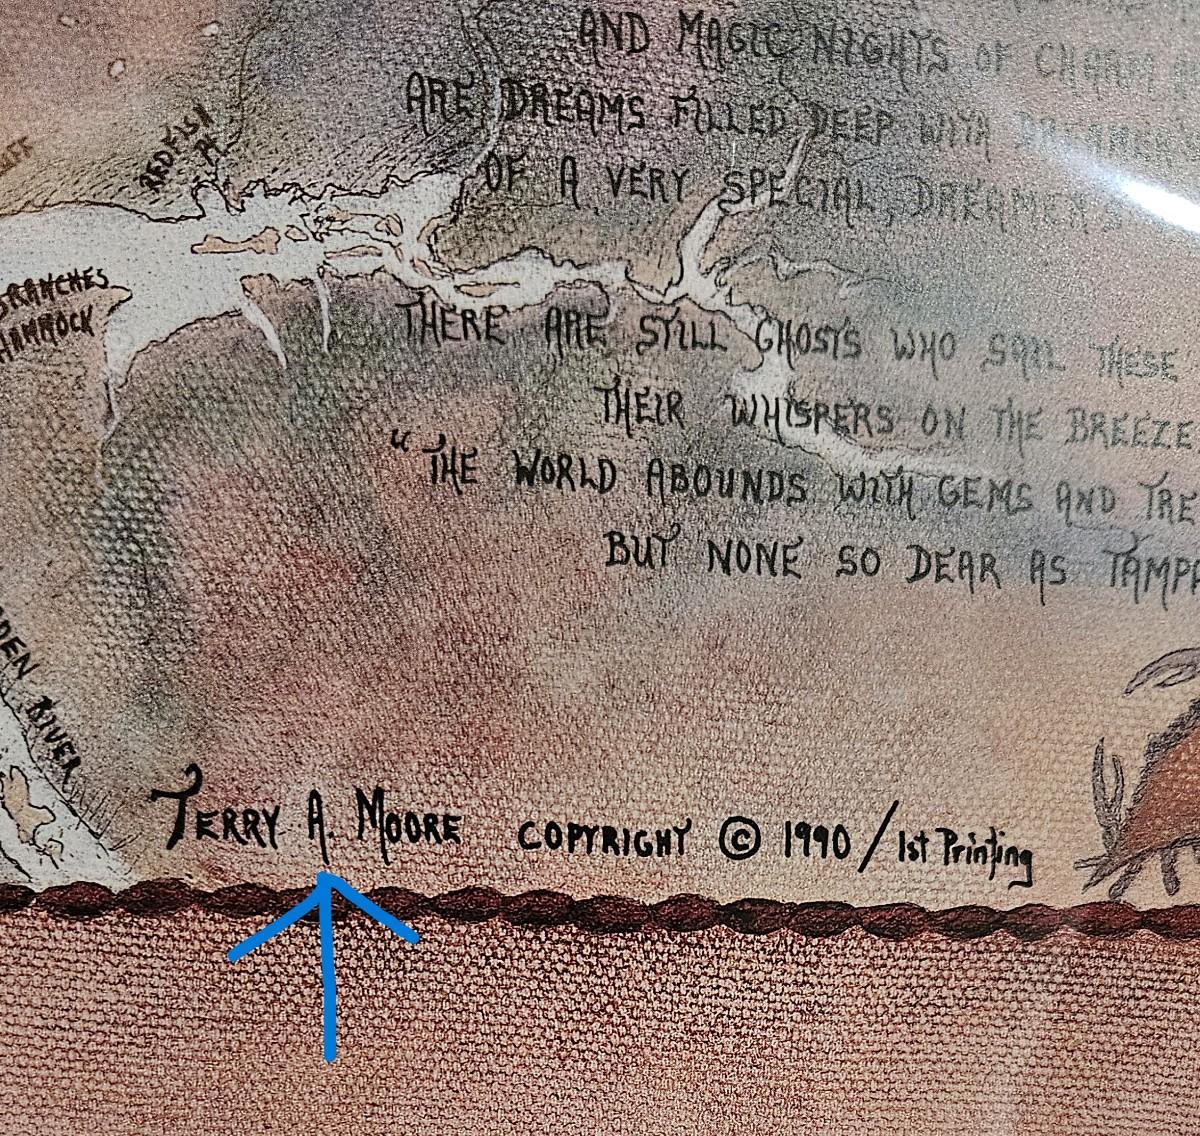 AND MAGIC NIGHTS OF CHARM
ARE DREAMS FILLED DEEP WITH
OF A VERY SPECIAL,
REDFISH
PT.
BRANCHES
HAMMOCK
THERE ARE STILL GHOSTS WHO SAIL THESE
THEIR WHISPERS ON THE BREEZE
"THE WORLD ABOUNDS WITH GEMS AND TRE
BUT NONE SO DEAR AS TAMPA
DEN RIVER
TERRY A. MOORE COPYRIGHT © 1990 / 1st Printing